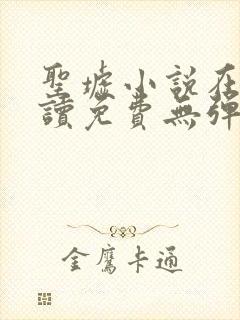 聖墟小說在
讀免費無彈
金鷹卡通